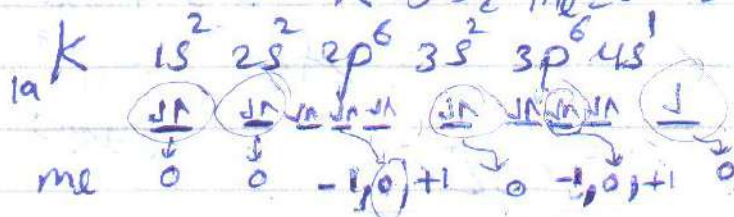 K 1s² 2s² 2p⁶ 3s² 3p⁶ 4s¹
19
me 0 0 -1,0,+1 0 -1,0,+1 0